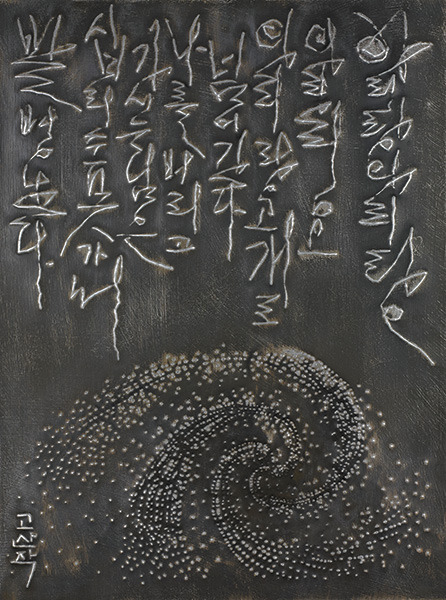 아리랑아리랑
아라리요
아리랑고개로
넘어간다
나를버리고
가시는님은
십리도못가서
발병난다